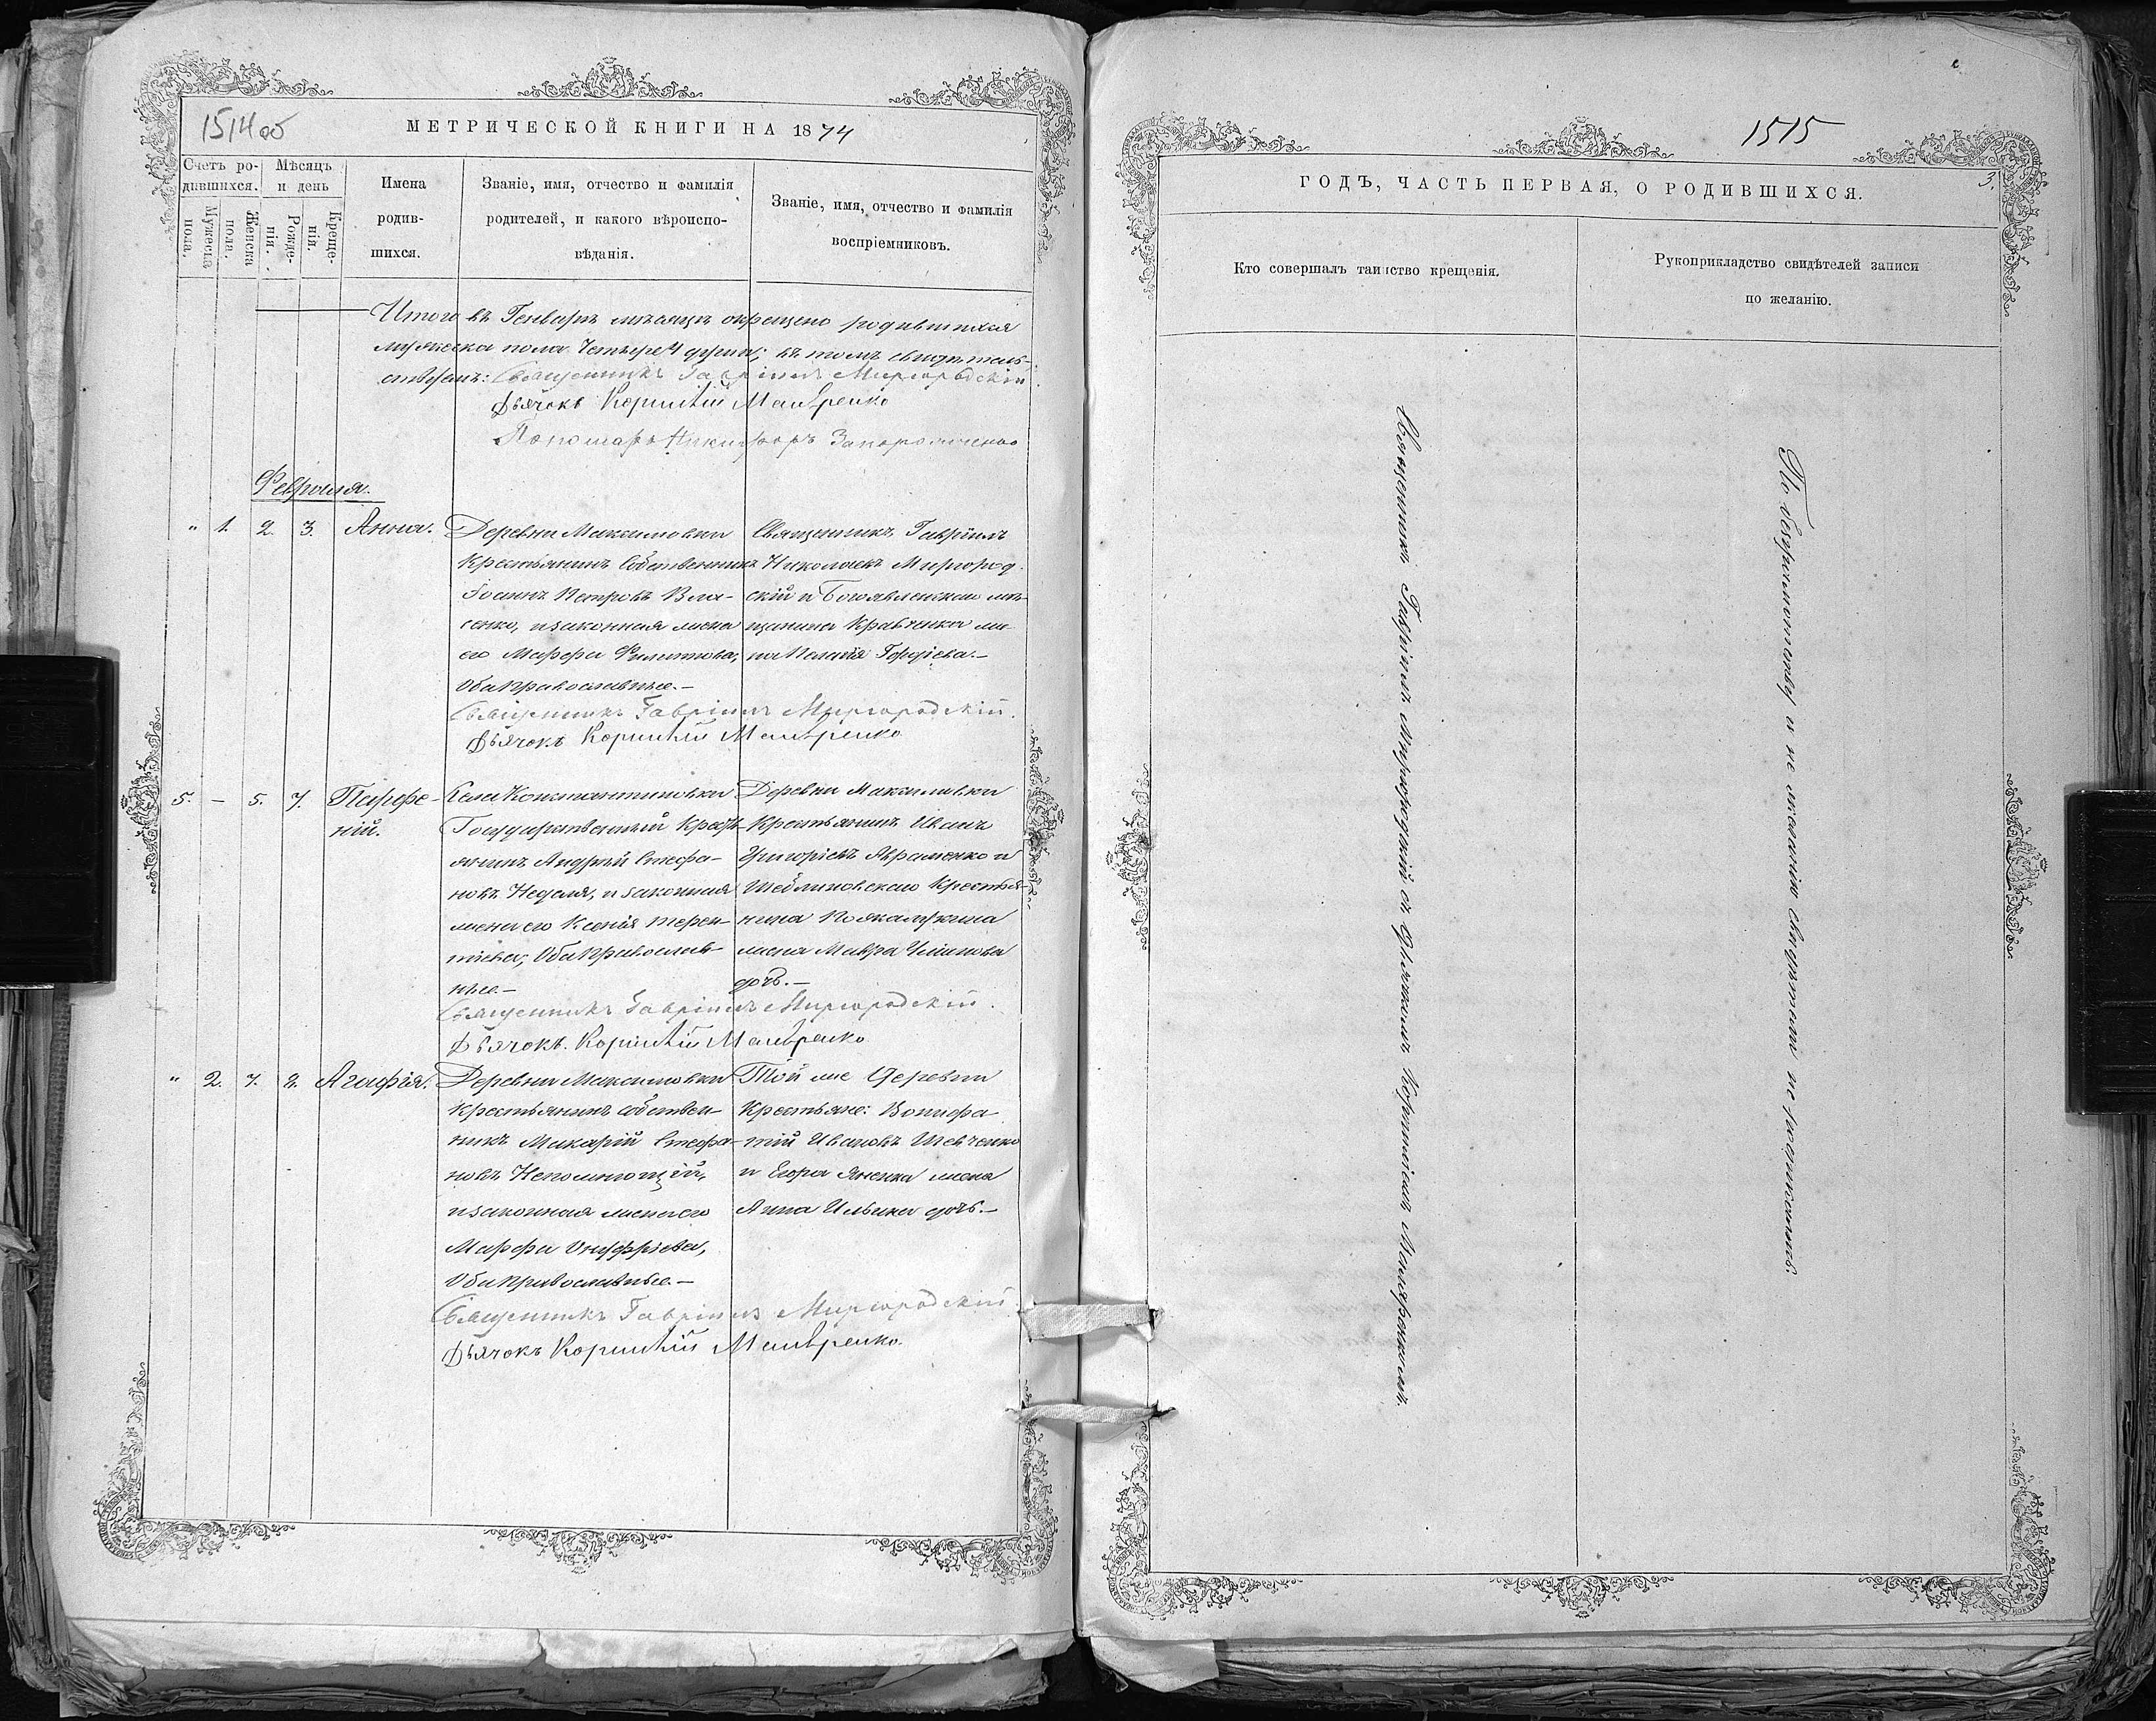 1514 об
МЕТРИЧЕСКОЙ КНИГИ НА 1874
Счетъ ро-
дившихся.
Мѣсяцъ
и день
Мужеска
пола.
Женска
пола.
Рожде-
нія.
Креще-
нія.
Имена
родив-
шихся.
Званіе, имя, отчество и фамилія
родителей, и какого вѣроиспо-
вѣданія.
Званіе, имя, отчество и фамилія
воспріемниковъ.
Итого въ Генварѣ мѣсяцѣ окрещено родившихся
мужеска пола Четыре 4 души; въ томъ свидѣтель-
ствуемъ: Священникъ Гавріилъ Миргородскій.
Дьячокъ Корнилій
Пономарь Никифоръ
Февраля.
" 1. 2. 3. Анна.
Деревни Максимовки
Крестьянинъ Собственникъ
Іоаннъ Петровъ Вла-
сенко, и законная жена
его Марфа Филиппова,
Оба православные.-
Священникъ Гавріилъ
Николаевъ Миргород-
скій и Богоявленскаго мѣ-
щанина Кравченка же-
на Пелагія Гордіева.-
Священникъ Гавріилъ Миргородскій.
Дьячокъ Корнилій
5. - 5. 7. Парфе-
ній.
Села Константиновки
Государственный Кресть-
янинъ Андрей Стефа-
новъ Неделя, и законная
жена его Ксенія Терен-
тіева, Оба Православ-
ные.-
Деревни Максимовки
Крестьянинъ Иванъ
Григорьевъ Авраменко и
Крестья-
нина
жена Мавра
дочь.-
Священникъ Гавріилъ Миргородскій.
Дьячокъ. Корнилій
" 2. 7. 8. Агафія.
Деревни Максимовки
Крестьянинъ Собствен-
никъ Макарій Стефа-
новъ Непомнющій,
и законная жена его
Марфа Онуфріева,
Оба Православные.-
Той же Деревни
Крестьяне: Вонифа-
тій Ивановъ Шевченко
и Егора Яненка жена
Анна Ильина дочь.-
Священникъ Гавріилъ Миргородскій
Дьячокъ Корнилій
1515
3.
ГОДЪ, ЧАСТЬ ПЕРВАЯ, О РОДИВШИХСЯ.
Кто совершалъ таинство крещенія.
Рукоприкладство свидѣтелей записи
по желанію.
Священникъ Гавріилъ Миргородскій съ дьячкомъ Корниліемъ
По безграмотству и не желанію свидѣтели не росписались.